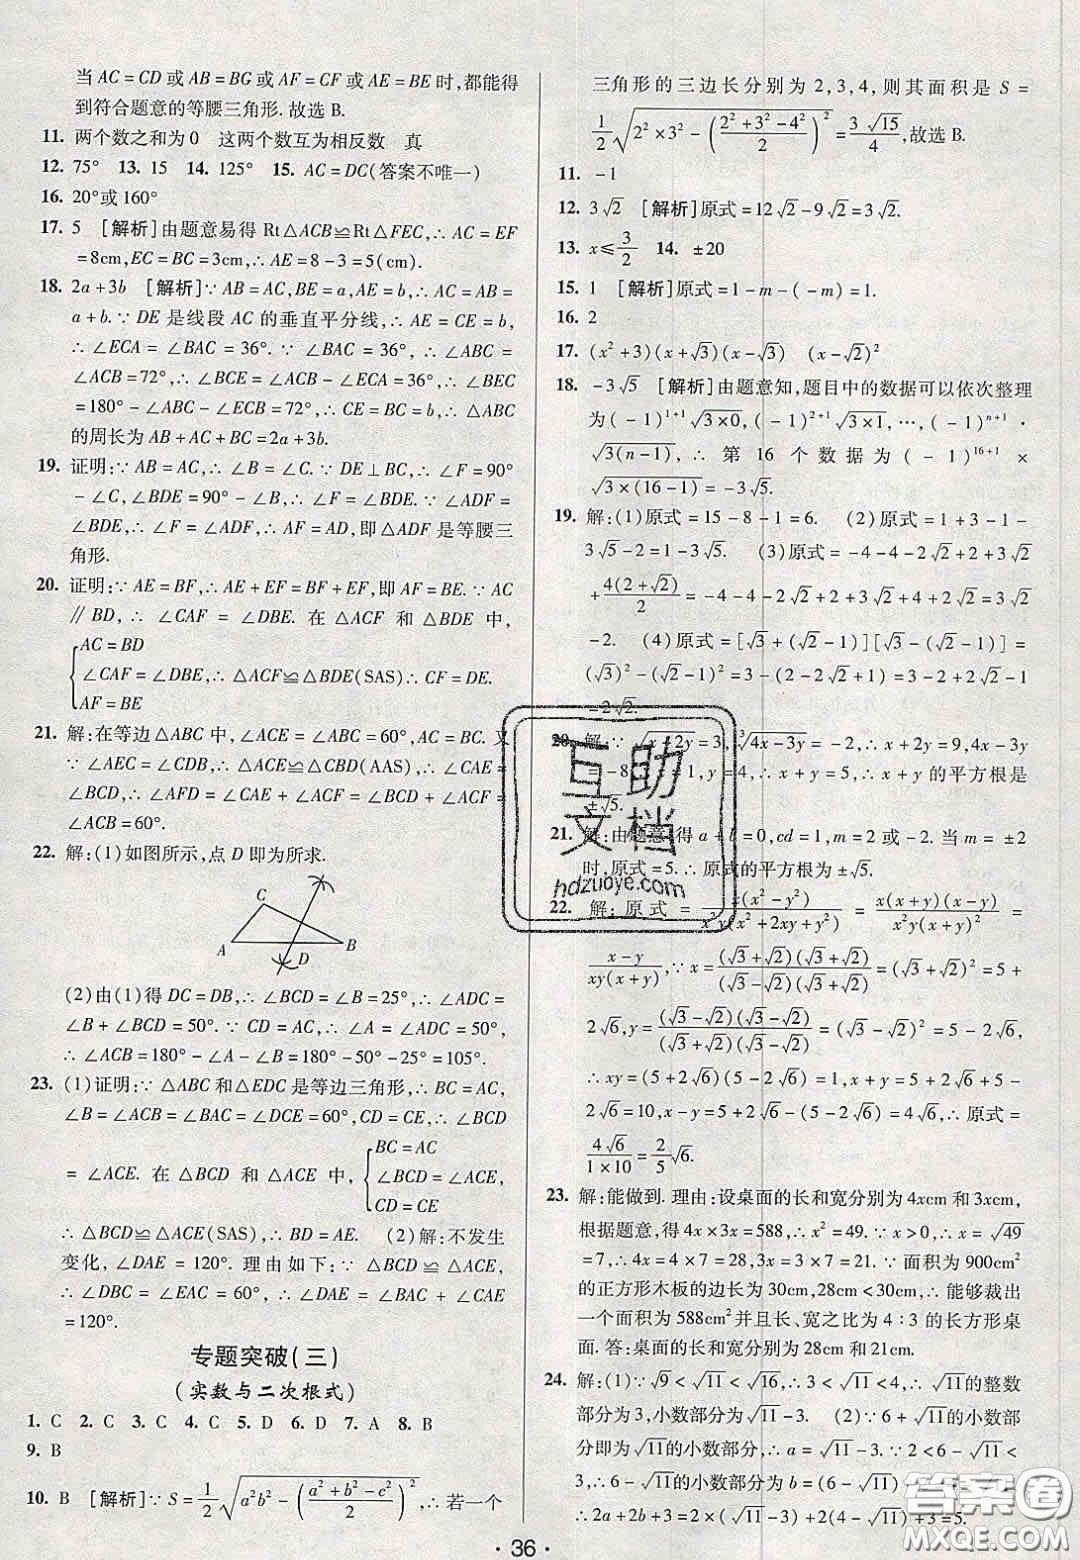 当 AC = CD 或 AB = BG 或 AF = CF 或 AE = BE 时,都能得
到符合题意的等腰三角形. 故选 B.
11. 两个数之和为 0　这两个数互为相反数　真
12. 75°　13. 15　14. 125°　15. AC = DC(答案不唯一)
16. 20°或 160°
17. 5　[解析]由题意易得 Rt△ACB≌Rt△FEC,∴ AC = EF
= 8cm,EC = BC = 3cm,∴ AE = 8 - 3 = 5(cm).
18. 2a + 3b　[解析]∵ AB = AC,BE = a,AE = b,∴ AC = AB =
a + b. ∵ DE 是线段 AC 的垂直平分线,∴ AE = CE = b,
∴ ∠ECA = ∠BAC = 36°. ∵ ∠BAC = 36°, ∴ ∠ABC =
∠ACB = 72°,∴ ∠BCE = ∠ACB - ∠ECA = 36°,∴ ∠BEC
= 180° - ∠ABC - ∠ECB = 72°,∴ CE = BC = b,∴ △ABC
的周长为 AB + AC + BC = 2a + 3b.
19. 证明:∵ AB = AC,∴ ∠B = ∠C. ∵ DE⊥BC,∴ ∠F = 90°
- ∠C,∠BDE = 90° - ∠B,∴ ∠F = ∠BDE. ∵ ∠ADF =
∠BDE,∴ ∠F = ∠ADF,∴ AF = AD,即△ADF 是等腰三
角形.
20. 证明:∵ AE = BF,∴ AE + EF = BF + EF,即 AF = BE. ∵ AC
∥BD,∴ ∠CAF = ∠DBE. 在 △ACF 和 △BDE 中,
{AC = BD
∠CAF = ∠DBE,∴ △ACF≌△BDE(SAS)∴ CF = DE.
AF = BE
21. 解:在等边△ABC 中,∠ACE = ∠CBD = 60°,AC = BC. 又
∵ ∠AEC = ∠CDB,∴ △ACE≌△CBD(AAS),∴ ∠CAE =
∠BCD,∴ ∠AFD = ∠CAE + ∠ACF = ∠BCD + ∠ACF =
∠ACB = 60°.
22. 解:(1)如图所示,点 D 即为所求.
C
A D B
(2)由(1)得 DC = DB,∴ ∠BCD = ∠B = 25°,∴ ∠ADC =
∠B + ∠BCD = 50°. ∵ CD = AC,∴ ∠A = ∠ADC = 50°,
∴ ∠ACB = 180° - ∠A - ∠B = 180° - 50° - 25° = 105°.
23. (1)证明:∵ △ABC 和△EDC 是等边三角形,∴ BC = AC,
∠B = ∠ACB = ∠BAC = ∠DCE = 60°,CD = CE,∴ ∠BCD
{BC = AC
= ∠ACE. 在 △BCD 和 △ACE 中, ∠BCD = ∠ACE,
CD = CE
∴ △BCD≌△ACE(SAS),∴ BD = AE. (2)解:不发生
变化,∠DAE = 120°. 理由如下:∵ △BCD ≌ △ACE,
∴ ∠DBC = ∠EAC = 60°, ∴ ∠DAE = ∠BAC + ∠CAE
= 120°.
专题突破(三)
(实数与二次根式)
1. C　2. C　3. C　4. C　5. D　6. D　7. A　8. B
9. B
10. B　[解析]∵ S = 1/2 √(a²b² - ((a² + b² - c²)/2)²),∴ 若一个
三角形的三边长分别为 2,3,4,则其面积是 S =
1/2 √(2² × 3² - ((2² + 3² - 4²)/2)²) = 3√15/4,故选 B.
11. -1
12. 3√2　[解析]原式 = 12√2 - 9√2 = 3√2.
13. x ≤ 3/2　14. ±20
15. 1　[解析]原式 = 1 - m - ( - m) = 1.
16. 2
17. (x² + 3)(x + √3)(x - √3)　(x - √2)²
18. -3√5　[解析]由题意知,题目中的数据可以依次整理
为( - 1)¹⁺¹√(3×0),( - 1)²⁺¹√(3×1),…,( - 1)ⁿ⁺¹ ·
√(3(n - 1)),∴ 第 16 个数据为( - 1)¹⁶⁺¹ ×
√(3×(16 - 1)) = -3√5.
19. 解:(1)原式 = 15 - 8 - 1 = 6. (2)原式 = 1 + 3 - 1 -
3√5 - 2 = 1 - 3√5. (3)原式 = -4 - 4 - 2√2 + 2 + 3√2
+ 4(2 + √2)/2 = -4 - 4 - 2√2 + 2 + 3√2 + 4 + 2√2 = 3√2
- 2. (4)原式 = [√3 + (√2 - 1)][√3 - (√2 - 1)] =
(√3)² - (√2 - 1)² = 3 - (2 - 2√2 + 1) = 3 - 2 + 2√2 - 1
= 2√2.
20. 解:∵ √(x + 2y) = 3,³√(4x - 3y) = -2,∴ x + 2y = 9,4x - 3y
= -8, x = 1,y = 4,∴ x + y = 5,∴ x + y 的平方根是
±√5.
21. 解:由题意得 a + b = 0,cd = 1,m = 2 或 - 2. 当 m = ±2
时,原式 = 5. ∴ 原式的平方根为 ±√5.
22. 解:原式 = x(x² - y²)/(x²y(x² + 2xy + y²)) = x(x + y)(x - y)/(x²y(x + y)²) =
(x - y)/(xy(x + y)),∵ x = (√3 + √2)(√3 + √2)/((√3 - √2)(√3 + √2)) = (√3 + √2)² = 5 +
2√6,y = (√3 - √2)(√3 - √2)/((√3 + √2)(√3 - √2)) = (√3 - √2)² = 5 - 2√6,
∴ xy = (5 + 2√6)(5 - 2√6) = 1,x + y = 5 + 2√6 + 5 -
2√6 = 10,x - y = 5 + 2√6 - (5 - 2√6) = 4√6,∴ 原式 =
4√6/(1×10) = 2/5 √6.
23. 解:能做到. 理由:设桌面的长和宽分别为 4xcm 和 3xcm,
根据题意,得 4x × 3x = 588,∴ x² = 49. ∵ x > 0,∴ x = √49
= 7,∴ 4x = 4 × 7 = 28,3x = 3 × 7 = 21. ∵ 面积为 900cm²
的正方形木板的边长为 30cm,28cm < 30cm,∴ 能够裁出
一个面积为 588cm² 并且长、宽之比为 4 : 3 的长方形桌
面. 答:桌面的长和宽分别为 28cm 和 21cm.
24. 解:(1)∵ √9 < √11 < √16,∴ 3 < √11 < 4,∴ √11的整数
部分为 3,小数部分为√11 - 3. (2)∵ 6 + √11的小数
部分即为√11的小数部分,∴ a = √11 - 3. ∵ 2 < 6 - √11 <
3,∴ 6 - √11的小数部分为 b = (6 - √11)
∴ 2a + 2b + 3 = 2(√11 - 3) + 2(4 - √11) + 3 = 5.
· 36 ·
互助
文档
hdzuoye.com
答案圈
MXQE.COM